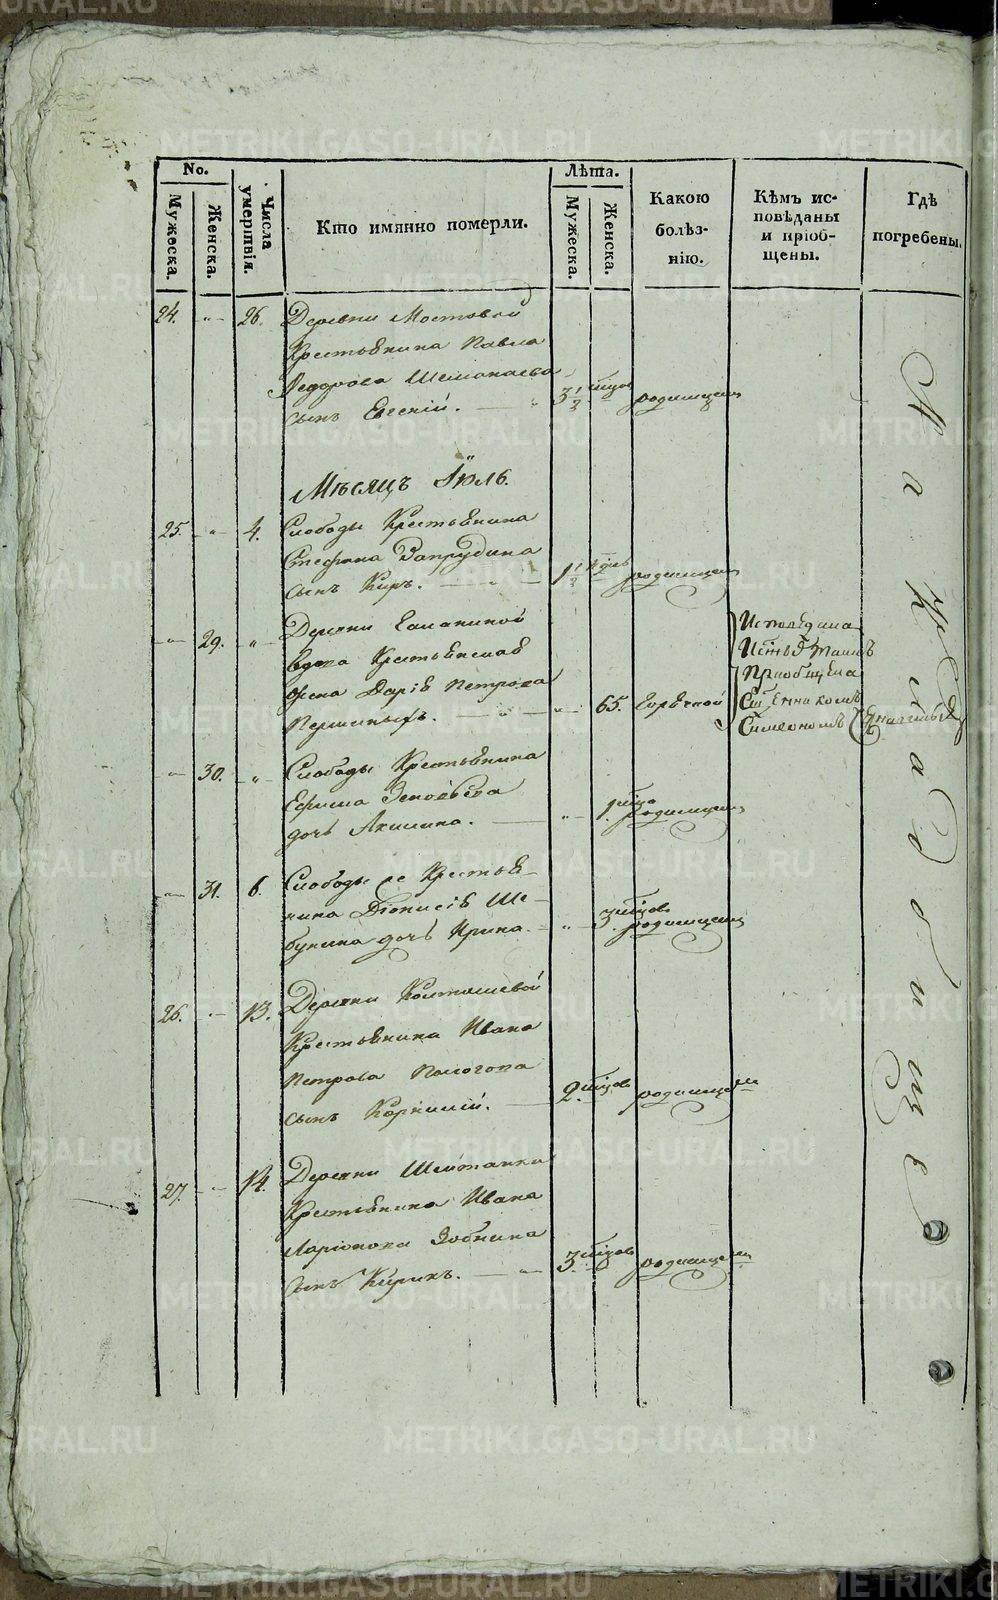 No.
Мужеска.
Женска.
Числа умертвія.
Кто имянно померли.
Лѣта.
Мужеска.
Женска.
Какою болѣз-
нію.
Кѣмъ ис-
повѣданы
и пріоб-
щены.
Гдѣ
погребены.
24. „ 26. Деревни Мостовой
Крестьянина Павла
Федорова Шеманаева
сынъ Евсевій. 3 1/2 мцов родимцемъ
Мѣсяцъ Іюль.
25. „ 4. Слободы Крестьянина
Стефана Запрудина
сынъ Киръ. родимцемъ
„ 29. „ Деревни
вдова Крестьянская
жена Дарія Петрова
Першиныхъ. „ 65. горячкой
Исповѣдана
Пріобщена
Сщенникомъ
Симеономъ
„ 30. „ Слободы Крестьянина
Ефима
дочь Акилина. „ 1. мцо родимцемъ
„ 31. 6. Слободы Крестья-
нина Діонисія Ше-
бунина дочь Ирина. „ 3. мцов родимцемъ
26. „ 13. Деревни Колташевой
Крестьянина Ивана
Петрова
сынъ Корнилій. 2. мцов родимцемъ
27. „ 14. Деревни Шайтанки
Крестьянина Ивана
Ларіонова Зобнина
сынъ Кирикъ. „ 3. мцов родимцемъ
На кладбищѣ
METRIKI.GASO-URAL.RU